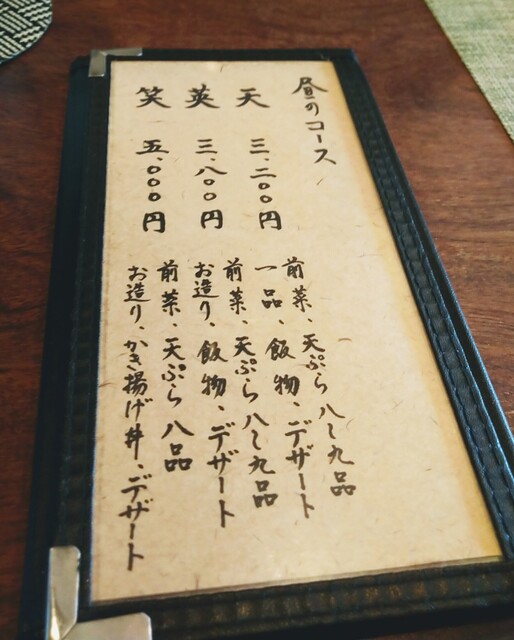 昼のコース
天 三、二〇〇円
前菜、天ぷら八〜九品
一品、飯物、デザート
英 三、八〇〇円
前菜、天ぷら八〜九品
お造り、飯物、デザート
笑 五、〇〇〇円
前菜、天ぷら八品
お造り、かき揚げ丼、デザート